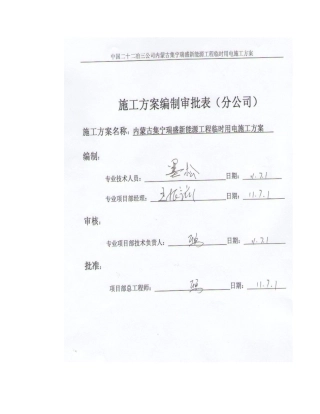 中国二十二冶三公司内蒙古集宁瑞盛新能源工程临时用电施工方案
施工方案编制审批表（分公司）
施工方案名称：内蒙古集宁瑞盛新能源工程临时用电施工方案
编制：
专业技术人员： 日期： 7.1
专业项目部经理： 日期： 11.7.1
审核：
专业项目部技术负责人： 日期： 7.1
批准：
项目部总工程师： 日期： 11.7.1